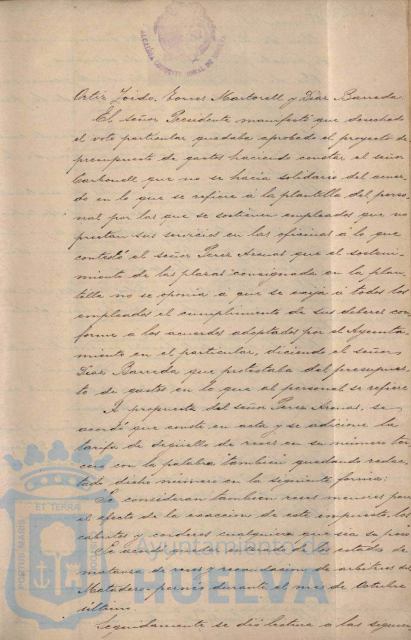 ALCALDIA CONSTITUCIONAL DE HUELVA
Ortiz Toido, Torres Martorell y Diaz Barreda
El señor Presidente manifestó que desechado
el voto particular quedaba aprobado el proyecto de
presupuesto de gastos haciendo constar el señor
Carbonell que no se hacia solidario del acuer
do en lo que se refiere á la plantilla del perso-
nal por los que se sostienen empleados que no
prestan sus servicios en las oficinas á lo que
contestó el señor Perez Arenas que el sosteni-
miento de las plazas consignada en la plan-
tilla no se oponia á que se exija á todos los
empleados el cumplimiento de sus deberes con
forme á los acuerdos adoptados por el Ayunta-
miento en el particular, diciendo el señor
Diaz Barreda que protestaba del presupues-
to de gastos en lo que al personal se refiere
A propuesta del señor Perez Arenas, se
acordó que conste en acta y se adicione la
tarifa de degüello de reses en su número ter
cero con la palabra "tambien" quedando redac-
tado dicho número en la siguiente forma:
Se consideran tambien reses menores para
el efecto de la exaccion de este impuesto, los
cabritos y corderos cualquiera que sea su peso
Se acordó quedar enterado de los estados de
matanza de reses y recaudacion de arbitrios de
Matadero personal durante el mes de Octubre
último
Seguidamente se dió lectura a las siguien
PORTUS MARIS ET TERRA CUSTODIA
Ayuntamiento de
HUELVA